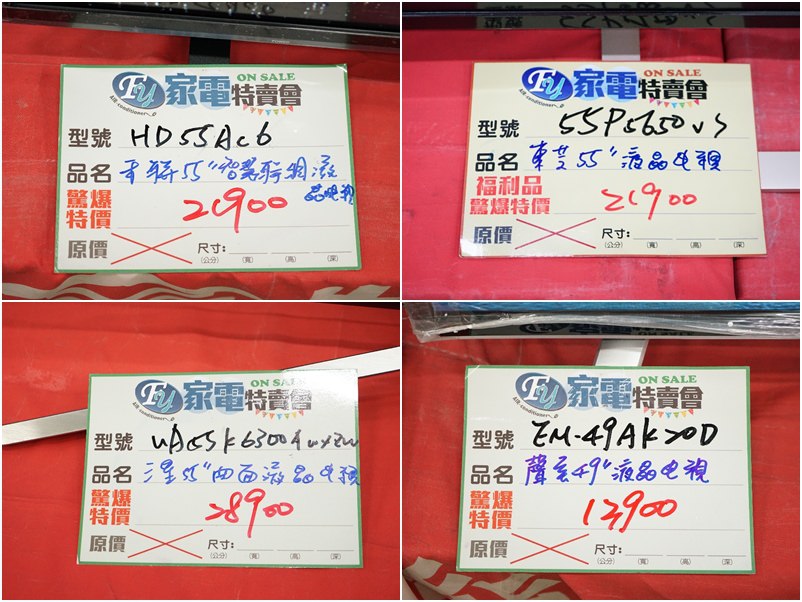 FY
Air conditioner
家電特賣會
ON SALE
型號 HD55Ac6
品名 禾聯55"智慧聯網液
晶電視
驚爆
特價 21900
原價
尺寸:
(公分) (寬) (高) (深)
FY
Air conditioner
家電特賣會
ON SALE
型號 55P5650VS
品名 東芝55"液晶电視
福利品
驚爆特價 21900
原價
尺寸:
(公分) (寬) (高) (深)
FY
Air conditioner
家電特賣會
ON SALE
型號 UA55K6300AWXZW
品名 三星55"曲面液晶电視
驚爆
特價 28900
原價
尺寸:
(公分) (寬) (高) (深)
FY
Air conditioner
家電特賣會
ON SALE
型號 EM-49AK20D
品名 聲宝49"液晶电視
驚爆
特價 12900
原價
尺寸:
(公分) (寬) (高) (深)